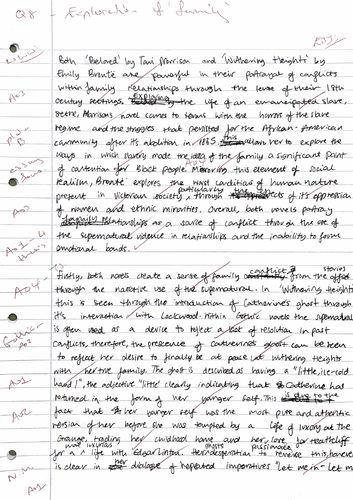 Q8 - Exploration of 'family'
Both 'Beloved' by Toni Morrison and 'Wuthering Heights' by
Emily Brontë are powerful in their portrayal of conflicts
within family relationships through the lense of their 19th
century settings. Exploring the life of an emancipated slave,
Sethe, Morrisons novel comes to terms with the horrors of the slave
regime and the struggles that persisted for the African-American
community after its abolition in 1865. This allows her to explore the
ways in which slavery made the idea of the family a significant point
of contention for Black people. Mirroring this element of social
realism, Brontë explores the worst conditions of human nature
present in Victorian society, particularly through the of its oppression
of women and ethnic minorities. Overall, both novels portray
family relationships as a source of conflict through the use of
the supernatural, violence in relationships and the inability to form
emotional bonds.
Firstly, both novels create a sense of family conflict from the offset
through the narrative use of the supernatural. In 'Wuthering Heights'
this is seen through the introduction of Catherine's ghost through
it's interaction with Lockwood. Within Gothic novels the supernatural
is often used as a device to reflect a lack of resolution in past
conflicts, therefore, the presence of Catherine's ghost can be seen
to reflect her desire to finally be at peace at Wuthering Heights
with her true family. The ghost is described as having a "little, ice-cold
hand", the adjective "little" clearly indicating that Catherine has
returned in the form of her younger self. This is due to the
fact that her younger self was the most pure and authentic
version of her before she was tempted by a life of luxury at the
Grange, trading her childhood home and her love for Heathcliff
for a more luxurious life with Edgar Linton. Her desperation to reverse this
is clear in her ghosts dialogue of repeated imperatives "Let me in - Let me
AO3
AO2
AO1
AO4
AO3
AO1
AO2
AO1